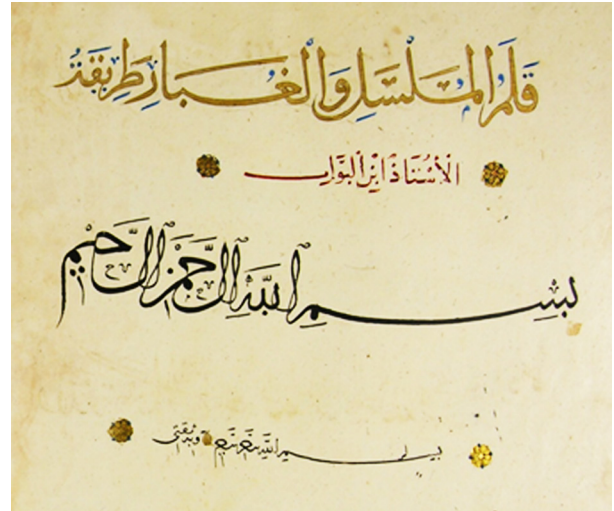 قَلَمُ المُسَلْسَلِ وَالْغُبَارِ طَرِيقَةُ
الْأُسْتَاذِ ابْنِ الْبَوَّابِ
بِسْمِ اللَّهِ الرَّحْمَنِ الرَّحِيمِ
بسم الله الرحمن الرحيم وبه ثقتي